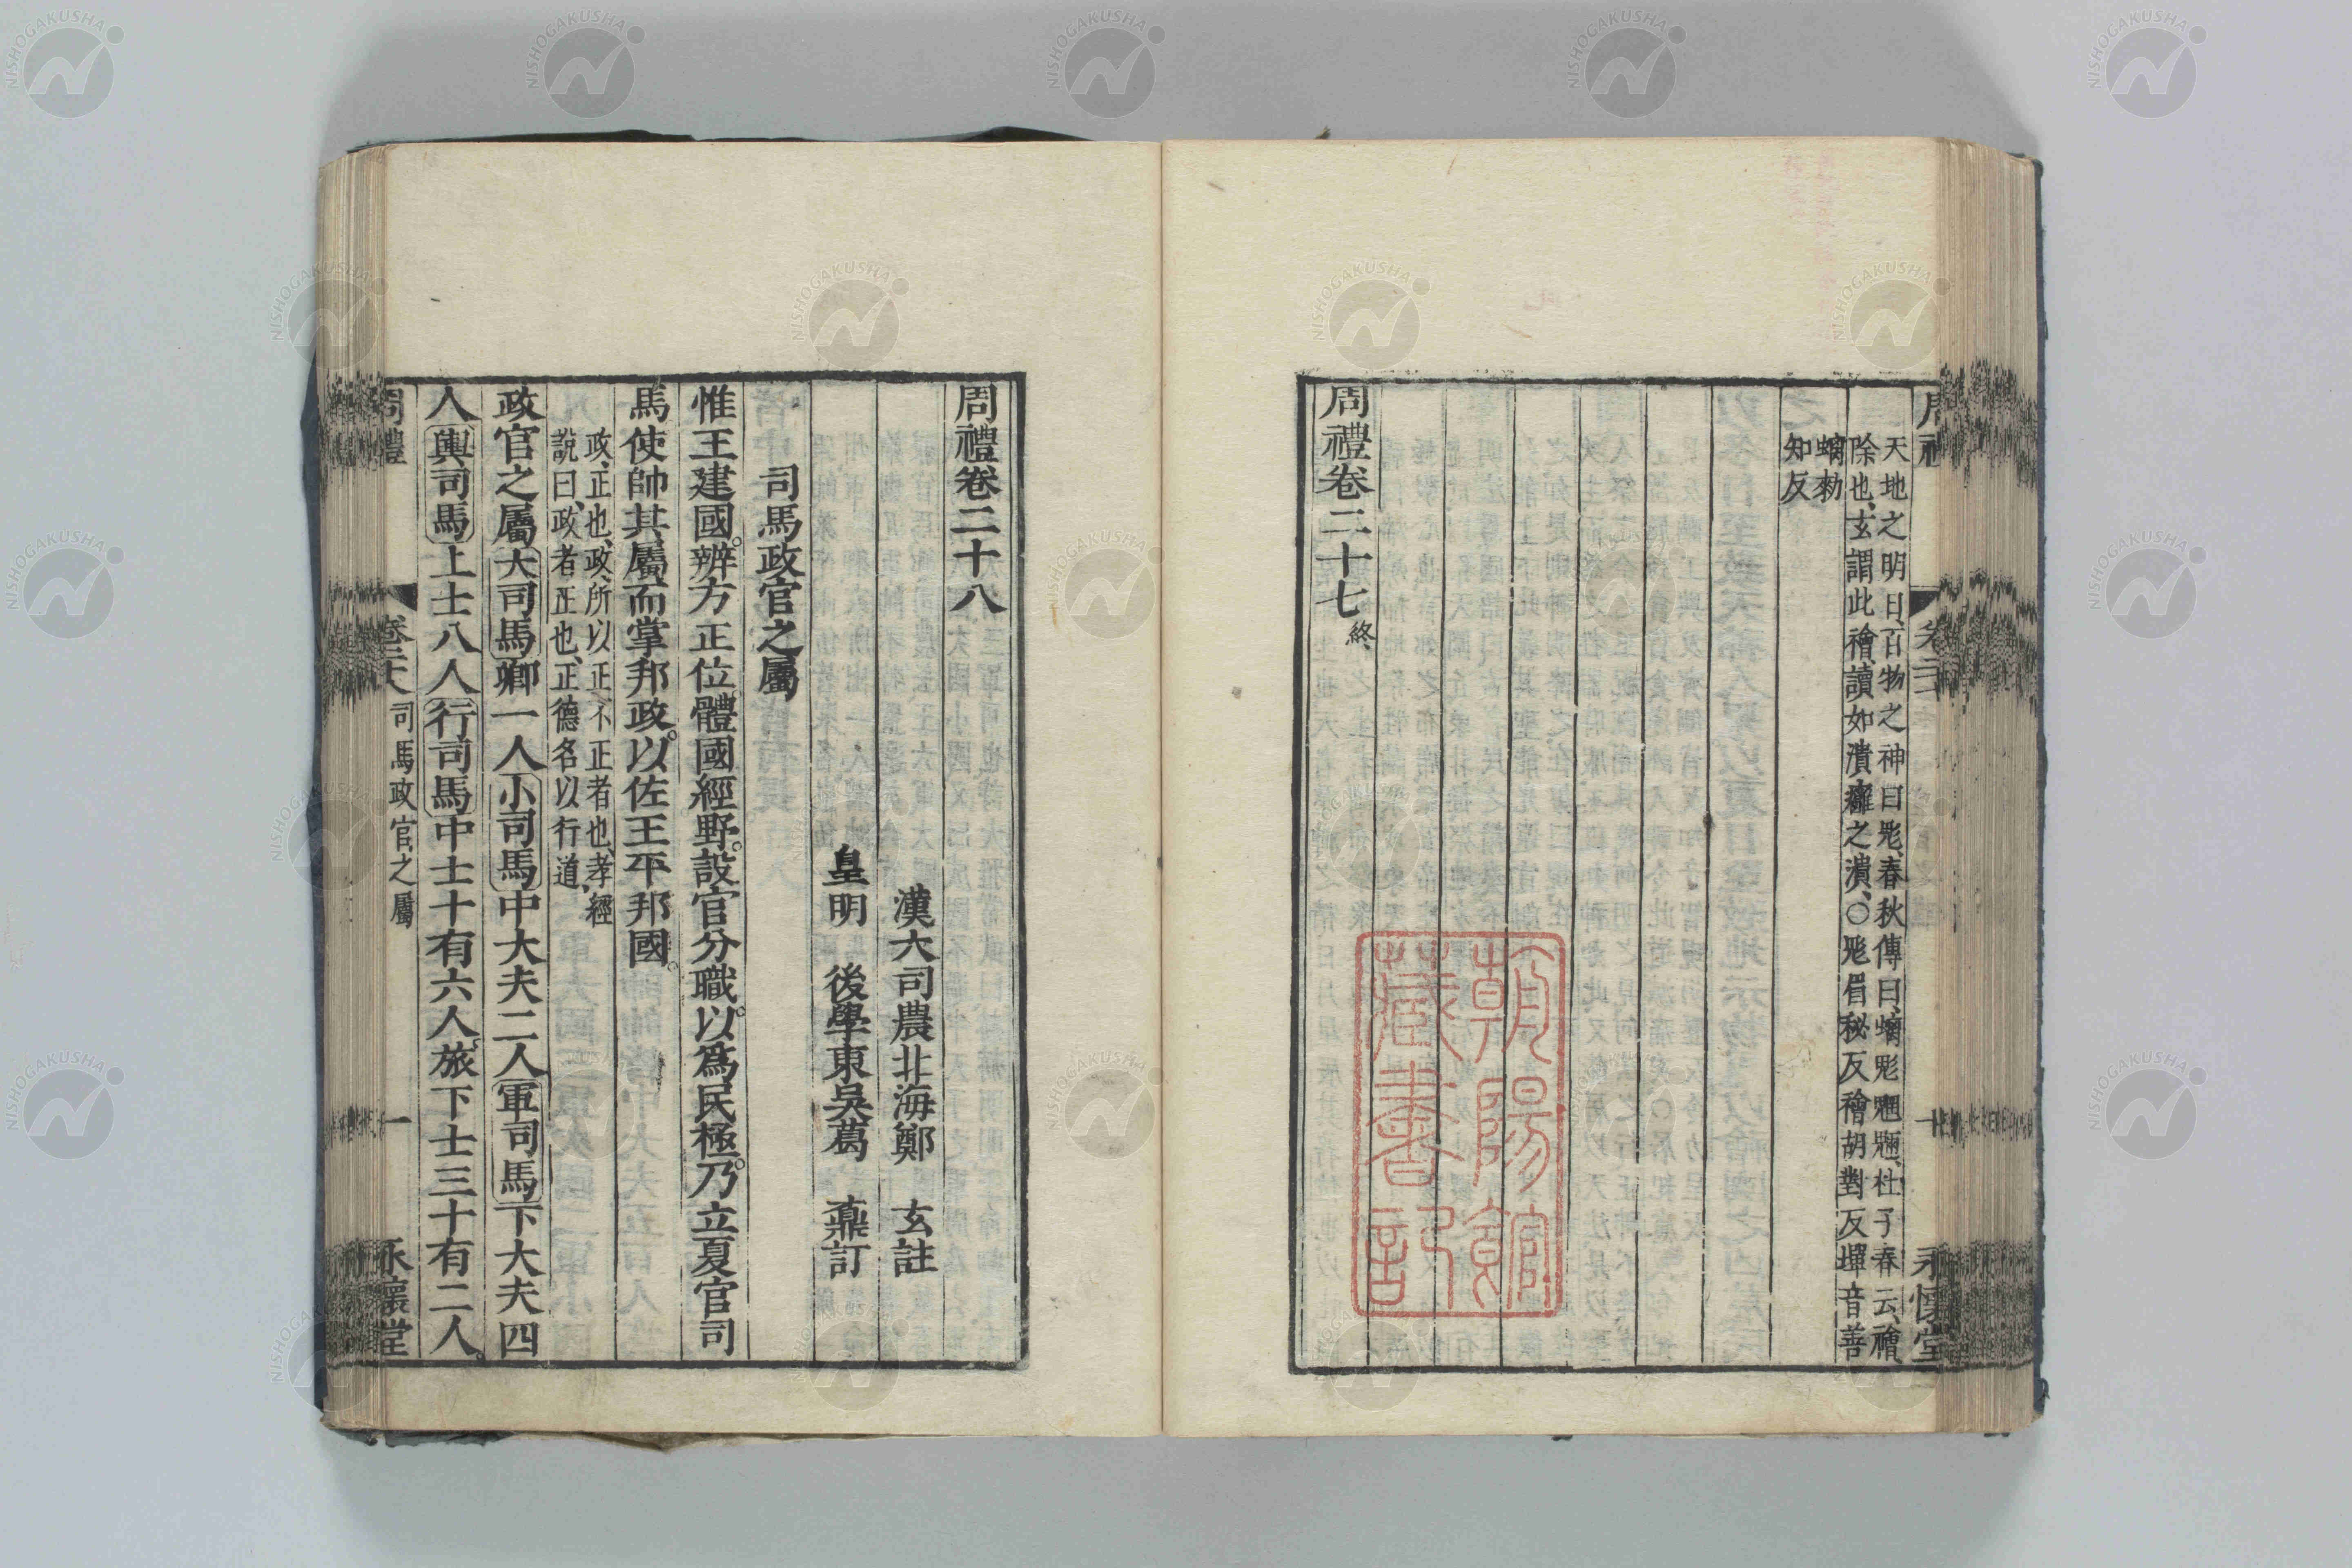 周禮
卷二十七
十
永懷堂
天地之明日、百物之神曰鬽、春秋傳曰、螭鬽魍魎、杜子春云、禬、
除也、玄謂此禬、讀如潰癰之潰、○鬽眉秘反禬胡對反墠音善
螭勑
知反
周禮卷二十七終
朝陽館
藏書記
周禮卷二十八
漢大司農北海鄭 玄註
皇明 後學東吳葛 鼒訂
司馬政官之屬
惟王建國。辨方正位體國經野。設官分職。以爲民極。乃立夏官司
馬使帥其屬而掌邦政。以佐王平邦國。
政、正也、政、所以正不正者也、孝經
說曰、政者正也、正德名以行道、
政官之屬大司馬卿一人小司馬中大夫二人軍司馬下大夫四
人輿司馬上士八人行司馬中士十有六人。旅下士三十有二人。
周禮
卷二十八
司馬政官之屬
一
永懷堂
NISHOGAKUSHA